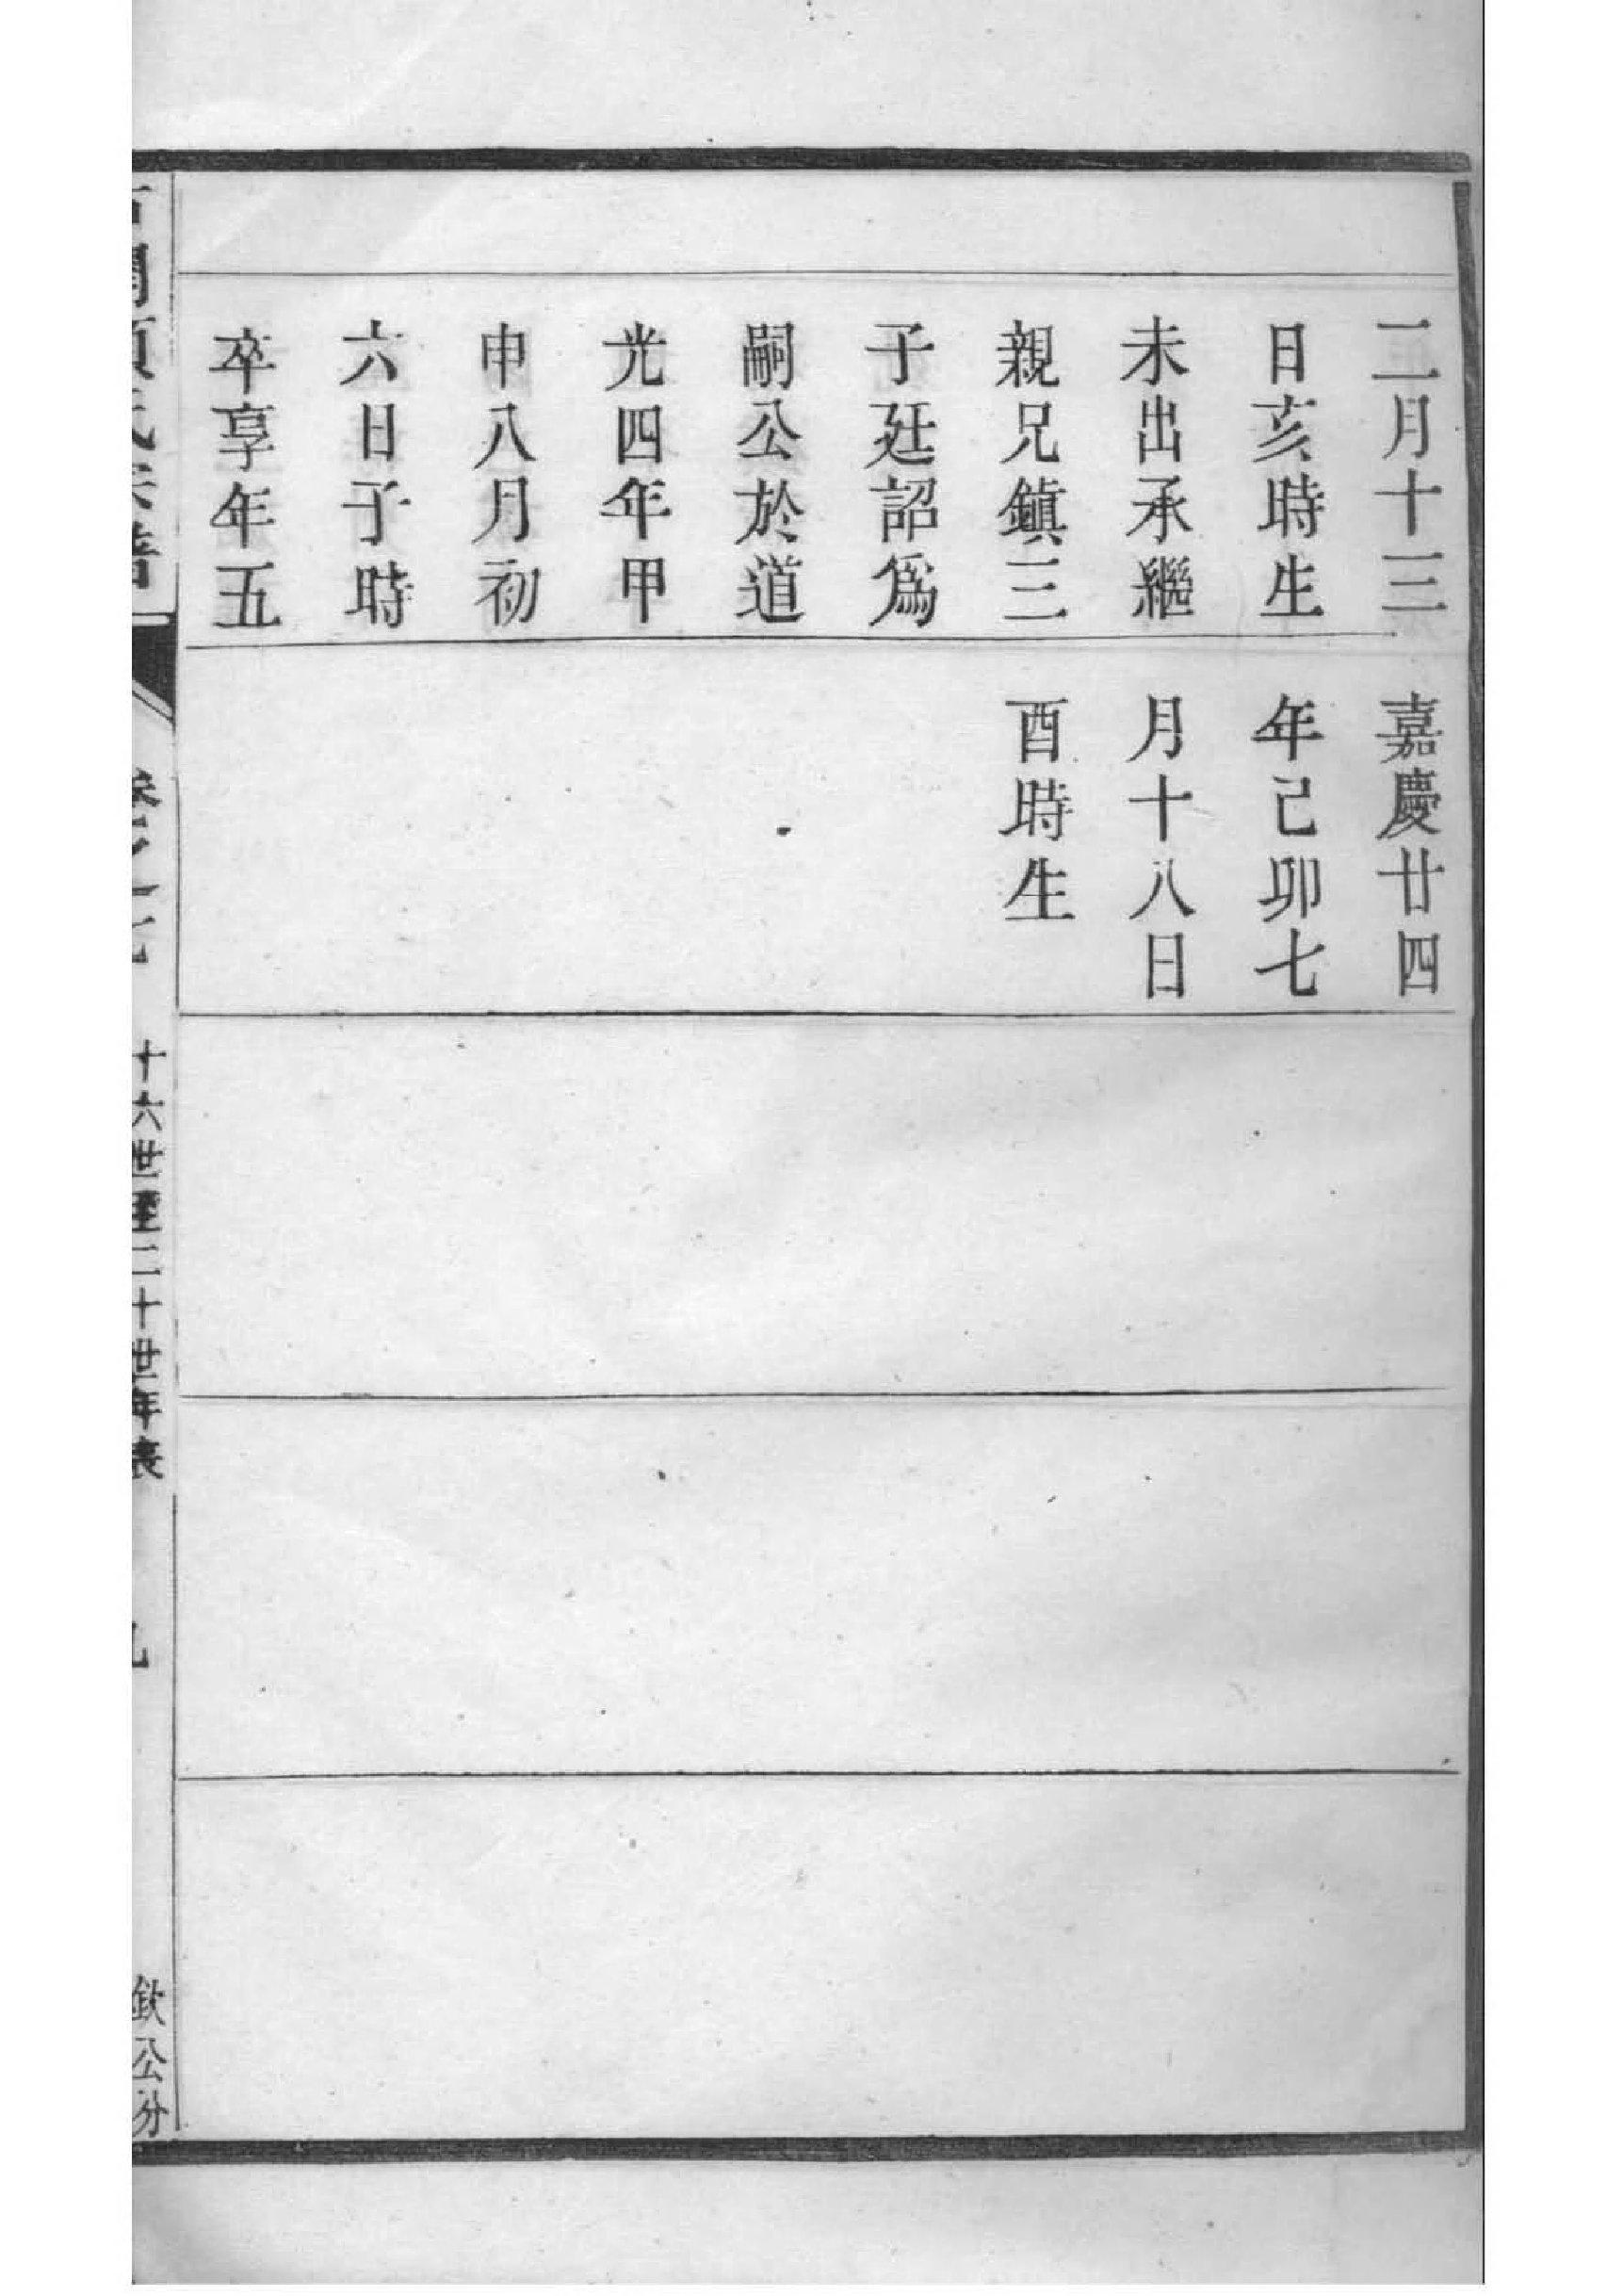 二月十三
日亥時生
未出承繼
親兄鎮三
子廷詔爲
嗣公於道
光四年甲
申八月初
六日子時
卒享年五
嘉慶廿四
年己卯七
月十八日
酉時生
氏宗譜
卷之七
十六世至二十世年表
欽公分